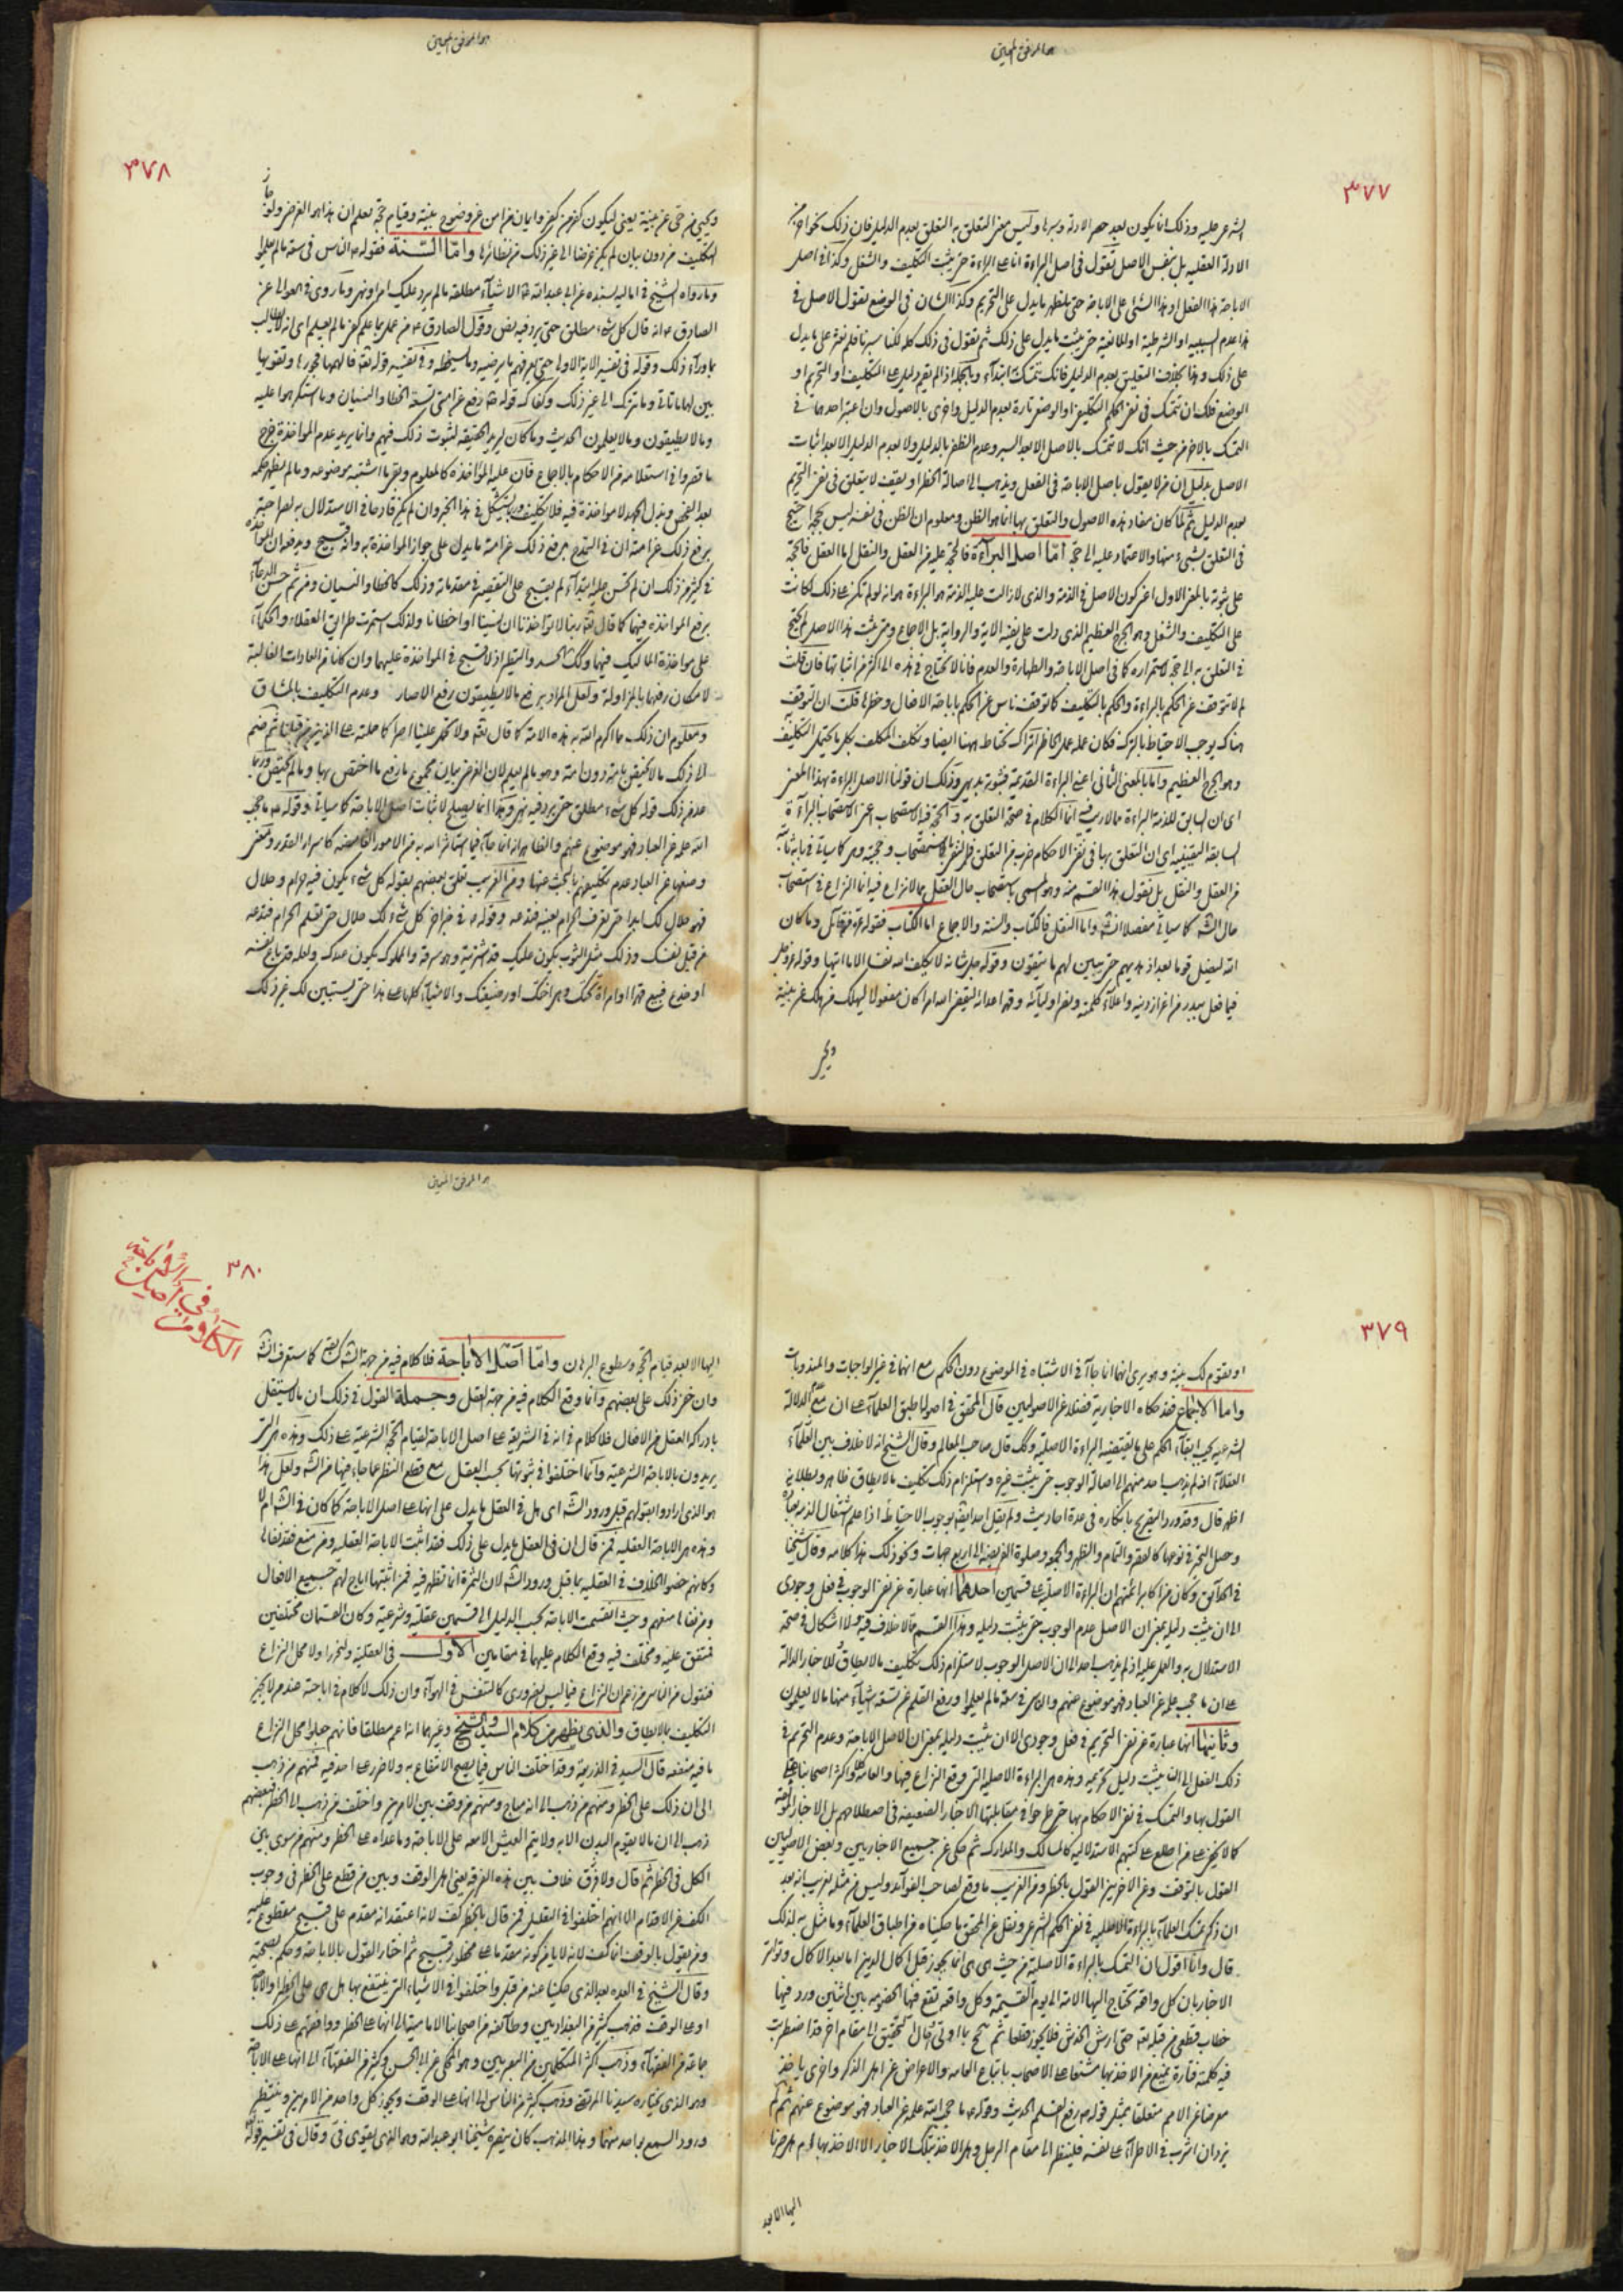 هو الموفق المعين
٣٧٧
الشرعى عليه وذلك انما يكون بعد حصر الادلة وسبرها وليس معنى التعلق به التعلق بعدم الدليل فان ذلك نحو اخر من
الادلة العقليه بل بنفس الاصل تقول فى اصل البراءة انا على البراءة حتى يثبت التكليف والشغل وكذا فى اصل
الاباحة هذا الفعل او هذا الشئ على الاباحة حتى يظهر ما يدل على التحريم وكذا الشان فى الوضع تقول الاصل فى
هذا عدم السببيه او الشرطية او المانعية حتى يثبت ما يدل على ذلك ثم تقول فى ذلك كله لكنا سبرنا فلم نعثر على ما يدل
على ذلك وهذا بخلاف التعليق بعدم الدليل فانك تتمسك به ابتدآء وبالجملة اذا لم يقم دليل على التكليف او التحريم او
الوضع فلك ان تتمسك فى نفى الحكم التكليفى او الوضعى تارة بعدم الدليل واخرى بالاصول وان اعتبر احدهما فى
التمسك بالاخر من حيث انك لا تتمسك بالاصل الا بعد السبر وعدم الظفر بالدليل ولا بعدم الدليل الا بعد اثبات
الاصل بدليل ان من لا يقول باصل الاباحة فى الفعل ويذهب الى اصالة الحظر او يقف لا يتعلق فى نفى التحريم
بعدم الدليل ثم لما كان مفاد هذه الاصول والتعلق بها انما هو الظن ومعلوم ان الظن فى نفسه ليس بحجة احتيج
فى التعلق بشىء منها والاعتماد عليه الى حجة امّا اصل البرآءة فالحجة عليه من العقل والنقل اما العقل فالحجة
على ثبوته بالمعنى الاول اعنى كون الاصل فى الذمة والذى لازالت عليه الذمة هو البراءة هو انه لو لم تكن على ذلك لكانت
على التكليف والشغل وهو الحرج العظيم الذى دلت على نفيه الاية والرواية بل الاجماع ومتى يثبت هذا الاصل لم يحتج
فى التعلق به الى حجة لاستمراره كما فى اصل الاباحة والطهارة والعدم فانا لا نحتاج فى هذه الى اكثر من اثباتها فان قلت
لم لا تتوقف عن الحكم بالبراءة والحكم بالتكليف كما توقف ناس عن الحكم باباحة الافعال وحظرها قلت ان التوقف
هناك يوجب الاحتياط بالترك فكان عمله عمل الحاظر اتراك تحتاط ههنا ايضا وتكلف المكلف بكل ما يحتمل التكليف
وهو الحرج العظيم وامّا بالمعنى الثانى اعنى البراءة القديمة فثبوته بديهى وذلك ان قولنا الاصل البراءة بهذا المعنى
اى ان السابق للذمة البراءة مما لا ريب فيه انما الكلام فى صحة التعلق به والحجة فيه الاستصحاب اعنى الاستصحاب البرآءة
السابقة اليقينية اى ان التعلق بها فى نفى الاحكام ضرب من التعلق بالاستصحاب وحجيته كما سياتى فى بابه ثابتة
من العقل والنقل بل نقول هذا القسم منه وهو المسمى باستصحاب حال العقل مما لا نزاع فيه انما النزاع فى استصحاب
حال الشرع كما سياتى مفصلا انشاء الله واما النقل فالكتاب والسنة والاجماع اما الكتاب فقوله عز من قائل وما كان
الله ليضل قوما بعد اذ هديهم حتى يبين لهم ما يتقون وقوله جل شانه لا يكلف الله نفسا الا ما اتيها وقوله عز وجل
فيما فعل ببدر من اعزاز دينه واعلآء كلمته ونصر اوليآئه وقهر اعدائه ليقضى الله امرا كان مفعولا ليهلك من هلك عن بينة
ويحيى
هو الموفق المعين
٣٧٨
ويحيى من حى عن بينة يعنى ليكون كفر من كفر وايمان من امن عن وضوح بينة وقيام حجة يعلم ان هذا هو الغرض ولو جاز
التكليف من دون بيان لم يكن غرضا الى غير ذلك من نظائرها وامّا السّنة فقوله ص الناس فى سعة ما لم يعلموا
وما رواه الشيخ فى اماليه بسنده عن ابى عبدالله ع الاشيآء مطلقة ما لم يرد عليك امر او نهى وما روى فى العوالى عن
الصادق ع انه قال كل شىء مطلق حتى يرد فيه نص وقول الصادق ع من عمل بما علم كفى ما لم يعلم اى انه لا يطالب
بما ورآء ذلك وقوله فى تفسير الاية الاولى حتى يعرفهم ما يرضيه وما يسخطه وفى تفسير قوله تعالى فالهمها فجورها وتقويها
بين لها ما تاتى وما تترك الى غير ذلك وكفاك قوله ص رفع عن امتى تسعة الخطا والنسيان وما استكرهوا عليه
وما لا يطيقون وما لا يعلمون الحديث وما كان ليريد الحقيقة لثبوت ذلك فيهم وانما يريد عدم المواخذة خرج
ما قصروا فى استعلامه من الاحكام بالاجماع فان عليه المواخذة كالمعلوم وبقى ما اشتبه موضوعه وما لم يظهر حكمه
بعد الفحص وبذل الجهد لا مواخذة فيه فلا تكليف وربما يستشكل فى هذا الخبر وان لم يكن قادحا فى الاستدلال به لصراحته
برفع ذلك عن امته ان فى التمدح برفع ذلك عن امته ما يدل على جواز المواخذة به وانه قبيح ويدفعه ان المواخذة
فى كثير من ذلك ان لم تحسن عليه ابتدآء لم يقبح على التقصير فى مقدماته وذلك كالخطا والنسيان ومن ثم حسن الدعآء
برفع المواخذه فيهما كما قال تعالى ربنا لا تواخذنا ان نسينا او اخطانا ولذلك استمرت طرايق العقلاء والحكمآء
على مواخذة المماليك فيهما وكذلك الحسد والتطير اذ لا قبح فى المواخذة عليهما وان كانا من العادات الغالبة
لامكان رفعهما بالمزاولة ولعل المراد برفع ما لا يطيقون رفع الاصار وعدم التكليف بالمشاق
ومعلوم ان ذلك مما اكرم الله به هذه الامة كما قال تعالى ولا تحمل علينا اصرا كما حملته على الذين من قبلنا ثم ضم
الى ذلك ما لا يختص بامة دون امة وهو ما لم يعلم لان الغرض بيان مجموع ما رفع ما اختص بها وما لم يختص وربما
عد من ذلك قوله كل شىء مطلق حتى يرد فيه نهى وهذا انما يصلح لاثبات اصل الاباحة كما سياتى وقوله ع ما حجب
الله علمه عن العباد فهو موضوع عنهم والظاهر انه انما جآء فيما استاثر الله به من الامور الغامضه كاسرار القدر ومعنى
وضعها عن العباد عدم تكليفهم بالبحث عنها ومن الغريب تعلق بعضهم بقوله كل شىء يكون فيه حرام وحلال
فهو حلال لك ابدا حتى تعرف الحرام بعينه فتدعه وقوله ع فى خبر اخر كل شىء لك حلال حتى تعلم الحرام فتدعه
من قبل نفسك وذلك مثل الثوب يكون عليك قد اشتريته وهو سرقة والمملوك يكون عندك ولعله قد باع نفسه
او خدع فبيع قهرا او امراة تحتك وهى اختك او رضيعتك والاشيآء كلها على هذا حتى يستبين لك غير ذلك
٣٧٩
او تقوم لك بينة وهو يرى انهما انما جآآ فى الاشتباه فى الموضوع دون الحكم مع انهما فى غير الواجبات والمندوبات
واما الاجماع فقد حكاه الاخباريه فضلا عن الاصوليين قال المحقق فى اصوله اطبق العلمآء على ان مع عدم الدلالة
الشرعيه يجب ابقآء الحكم على ما تقتضيه البراءة الاصلية وكذلك قال صاحب المعالم وقال الشيخ انه لا خلاف بين العلمآء
العقلآء اذ لم يذهب احد منهم الى اصالة الوجوب حتى يثبت غيره ويستلزم ذلك تكليف ما لا يطاق ظاهر وبطلانه
اظهر قال وقد ورد التصريح بانكاره فى عدة احاديث ولم يقل احد ايضا بوجوب الاحتياط اذا علم اشتغال الذمة بعبادة
وحصل التحير فى نوعها كالقصر والتمام والظهر والجمعه وصلوة الفريضه الى اربع جهات ونحو ذلك هذا كلامه وقال شيخنا
فى الحدآئق وكان من اكابر ائمتهم ان البراءة الاصلية على قسمين احدهما انها عبارة عن نفى الوجوب فى فعل وجودى
الى ان يثبت دليله بمعنى ان الاصل عدم الوجوب حتى يثبت دليله وهذا القسم مما لا خلاف فيه ولا اشكال فى صحة
الاستدلال به والعمل عليه اذ لم يذهب احد الى ان الاصل الوجوب لاستلزام ذلك تكليف ما لا يطاق وللاخبار الدالة
على ان ما حجب علمه عن العباد فهو موضوع عنهم والناس فى سعة ما لم يعلموا ورفع القلم عن تسعة اشيآء منها ما لا يعلمون
وثانيهما انها عبارة عن نفى التحريم فى فعل وجودى الا ان يثبت دليله بمعنى ان الاصل الاباحة وعدم التحريم فى
ذلك الفعل الى ان يثبت دليل تحريمه وهذه هى البراءة الاصلية التى وقع النزاع فيها والعامة كلهم واكثر اصحابنا على
القول بها والتمسك فى نفى الاحكام بها حتى طرحوا فى مقابلتها الاخبار الضعيفه فى اصطلاحهم بل الاخبار الموثقة
كما لا يخفى على من اطلع على كتبهم الاستدلاليه كالمسالك والمدارك ثم حكى عن جميع الاخباريين وبعض الاصوليين
القول بالتوقف وعن الاخرين القول بالحظر ومن الغريب ما وقع لصاحب الفوآئد وليس من مثله بغريب انه بعد
ان ذكر تمسك العلمآء بالبراءة الاصليه فى نفى الحكم الشرعى ونقل عن المحقق ما حكيناه من اطباق العلمآء وما مثل به لذلك
قال وانا اقول ان التمسك بالبراءة الاصلية من حيث هى هى انما يجوز قبل اكمال الدين اما بعد الاكمال وتواتر
الاخبار بان كل واقعة تحتاج اليها الامة الى يوم القيمة وكل واقعه تقع فيها الخصومه بين اثنين ورد فيها
خطاب قطعى من قبله تعالى حتى ارش الخدش فلا يجوز قطعا ثم
فيه كلمته فتارة يمنع من الاخذ بها مشنعا على الاصحاب باتباع العامه والاعراض عن اهل الذكر واخرى ياخذ
معرضا عن الامم متعلقا بمثل قوله ص رفع القلم الحديث وقوله ع ما حجب الله علمه عن العباد فهو موضوع عنهم ثم لم
الاخذ بتلك الاخبار الا الاخذ بها
اليها الا بعد
هو الموفق المعين
٣٨٠
الكلام فى اصل الاباحة
اليها الا بعد قيام الحجة وسطوع البرهان وامّا اصل الاباحة فلا كلام فيه من جهة الشرع كما ستعرف انشاء الله
وان خفى ذلك على بعضهم وانما وقع الكلام فيه من جهة العقل وجملة القول فى ذلك ان ما لا يستقل
بادراكه العقل من الافعال فلا كلام فى انه فى الشريعة على اصل الاباحة لقيام الحجة الشرعية على ذلك وهذه هى التى
يريدون بالاباحة الشرعية وانما اختلفوا فى ثبوتها بحسب العقل مع قطع النظر عما جاء فيها من الشرع ولعل هذا
هو الذى ارادوا بقولهم قبل ورود الشرع اى هل فى العقل ما يدل على انها على اصل الاباحة كما كان فى الشرع ام لا
وهذه هى الاباحة العقليه فمن قال ان فى العقل ما يدل على ذلك فقد اثبت الاباحة العقليه ومن منع فقد نفاها
وكانهم خصوا الخلاف فى العقليه بما قبل ورود الشرع لان الثمرة انما تظهر فيه فمن اثبتها اباح لهم جميع الافعال
ومن نفاها منعهم وحيث انقسمت الاباحة بحسب الدليل الى قسمين عقلية وشرعية وكان القسمان مختلفين
فمتفق عليه ومختلف فيه وقع الكلام عليهما فى مقامين الاول فى العقلية ولنحرر اولا محل النزاع
فنقول من الناس من زعم ان النزاع فيما ليس بضرورى كالتنفس فى الهوآء وان ذلك لا كلام فى اباحته عند من لا يجيز
التكليف بما لا يطاق والذى يظهر من كلام السيد والشيخ وغيرهما انه اعم مطلقا فانهم جعلوا محل النزاع
ما فيه منفعه قال السيد فى الذريعة وقد اختلف الناس فيما يصح الانتفاع به ولا ضرر على احد فيه فمنهم من ذهب
الى ان ذلك على الحظر ومنهم من ذهب الى انه مباح ومنهم من وقف بين الامرين واختلف من ذهب الى الحظر فبعضهم
ذهب الى ان ما لا يقوم البدن الا به ولا يتم العيش الا معه على الاباحة وما عداه على الحظر ومنهم من سوى بين
الكل فى الحظر ثم قال ولا فرق خلاف بين هذه الفرقة يعنى اهل الوقف وبين من قطع على الحظر فى وجوب
الكف عن الاقدام الا انهم اختلفوا فى التعليل فمن قال بالحظر كف لانه اعتقد انه مقدم على قبيح مقطوع عليه
ومن يقول بالوقف انما كف لانه لا يامن كونه مقدما على محظور قبيح ثم اختار القول بالاباحة وحكم بصحته
وقال الشيخ فى العده بعد الذى حكيناه عنه من قبل واختلفوا فى الاشياء التى ينتفع بها هل هى على الحظر او الاباحة
او على الوقف فذهب كثير من البغداديين وطآئفة من اصحابنا الامامية الى انها على الحظر ووافقهم على ذلك
جماعة من الفقهآء وذهب اكثر المتكلمين من البصريين وهو المحكى عن ابى الحسن وكثير من الفقهآء الى انها على الاباحة
وهو الذى يختاره سيدنا المرتضى وذهب كثير من الناس الى انها على الوقف ويجوز كل واحد من الامرين وينتظر
ورود السمع بواحد منهما وهذا المذهب كان ينصره شيخنا ابو عبدالله وهو الذى يقوى فى وقال فى تفسير قوله